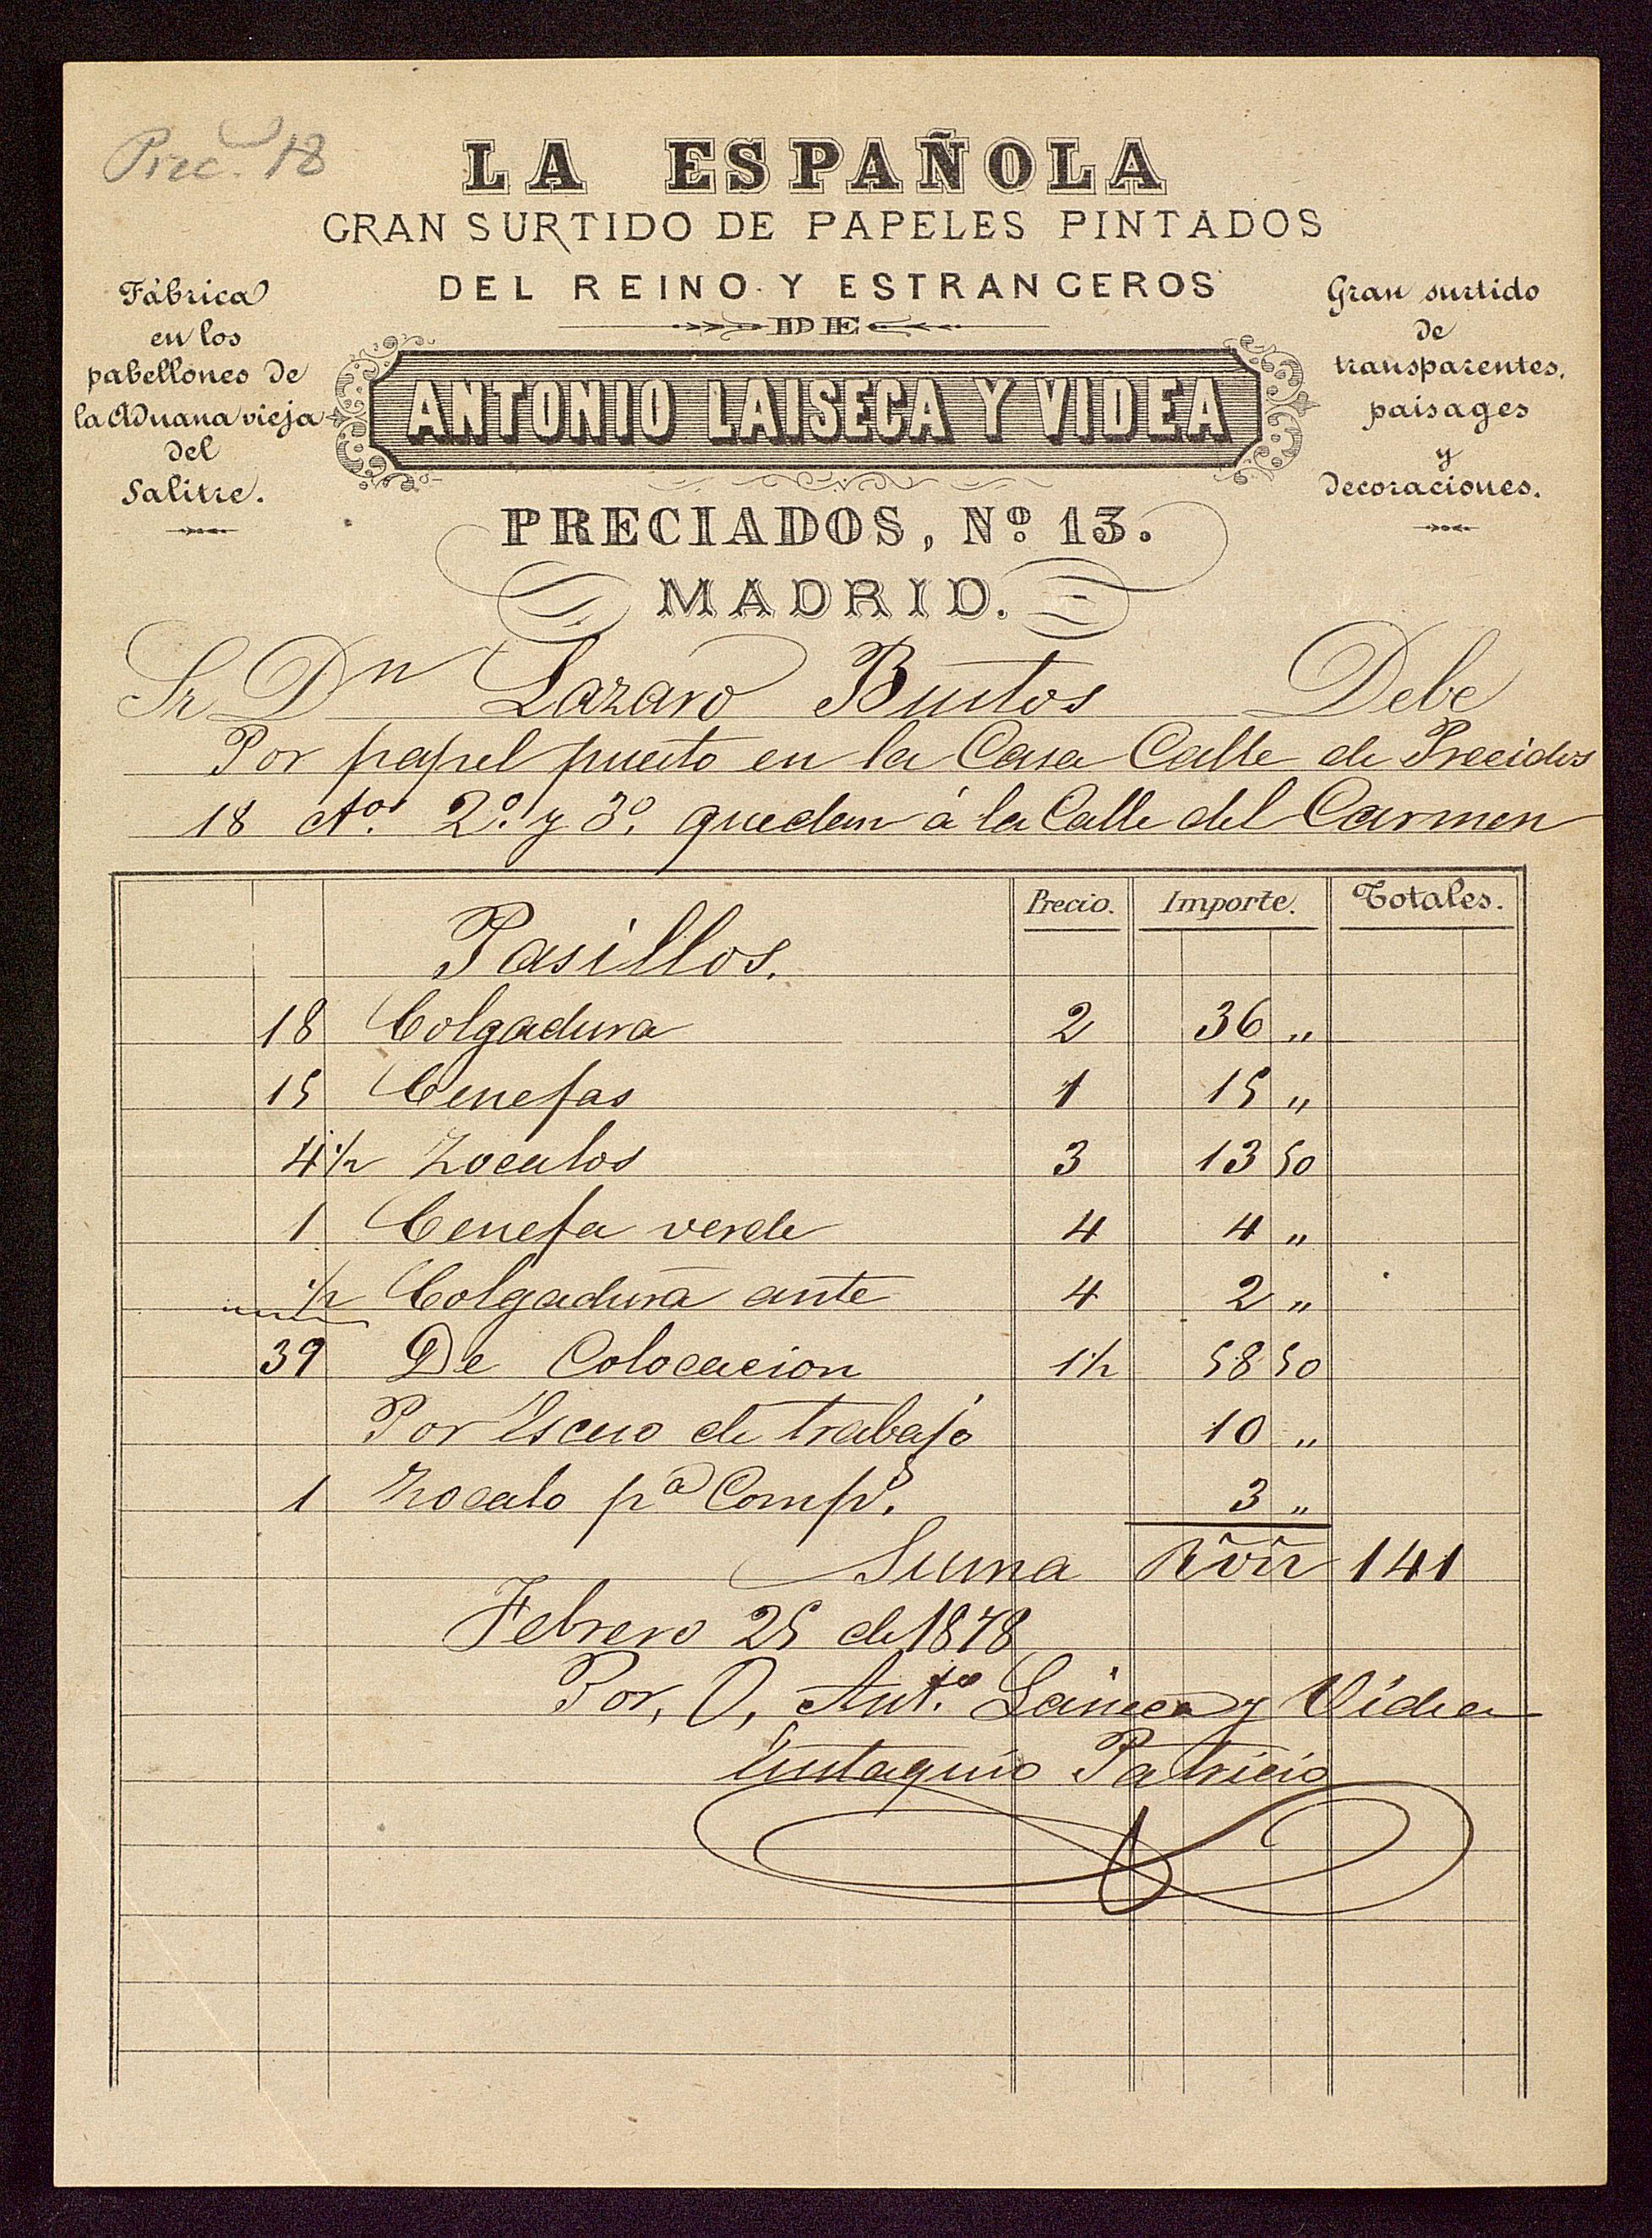 Prec. 18
LA ESPAÑOLA
GRAN SURTIDO DE PAPELES PINTADOS
DEL REINO Y ESTRANGEROS
DE
ANTONIO LAISECA Y VIDEA
PRECIADOS, Nº 13.
MADRID.
Fábrica
en los
pabellones de
la Aduana vieja
del
Salitre.
Gran surtido
de
transparentes,
paisages
y
decoraciones.
Sr Dn Lazaro Bustos Debe
Por papel puesto en la Casa Calle de Preciados
18 Ctos. 2º y 3º. que dan á la Calle del Carmen
Precio. Importe. Totales.
Pasillos.
18 Colgadura 2 36 „
15 Cenefas 1 15 „
4 1/2 Zocalos 3 13 50
1 Cenefa verde 4 4 „
1/2 Colgadura ante 4 2 „
39 De Colocacion 1 1/2 58 50
Por Esceso de trabajo 10 „
1 Zocalo pª Compr. 3 „
Suma Rvn 141
Febrero 25 de 1878
Por, O, Antº Laiseca y Videa
Eustaquio Patricio